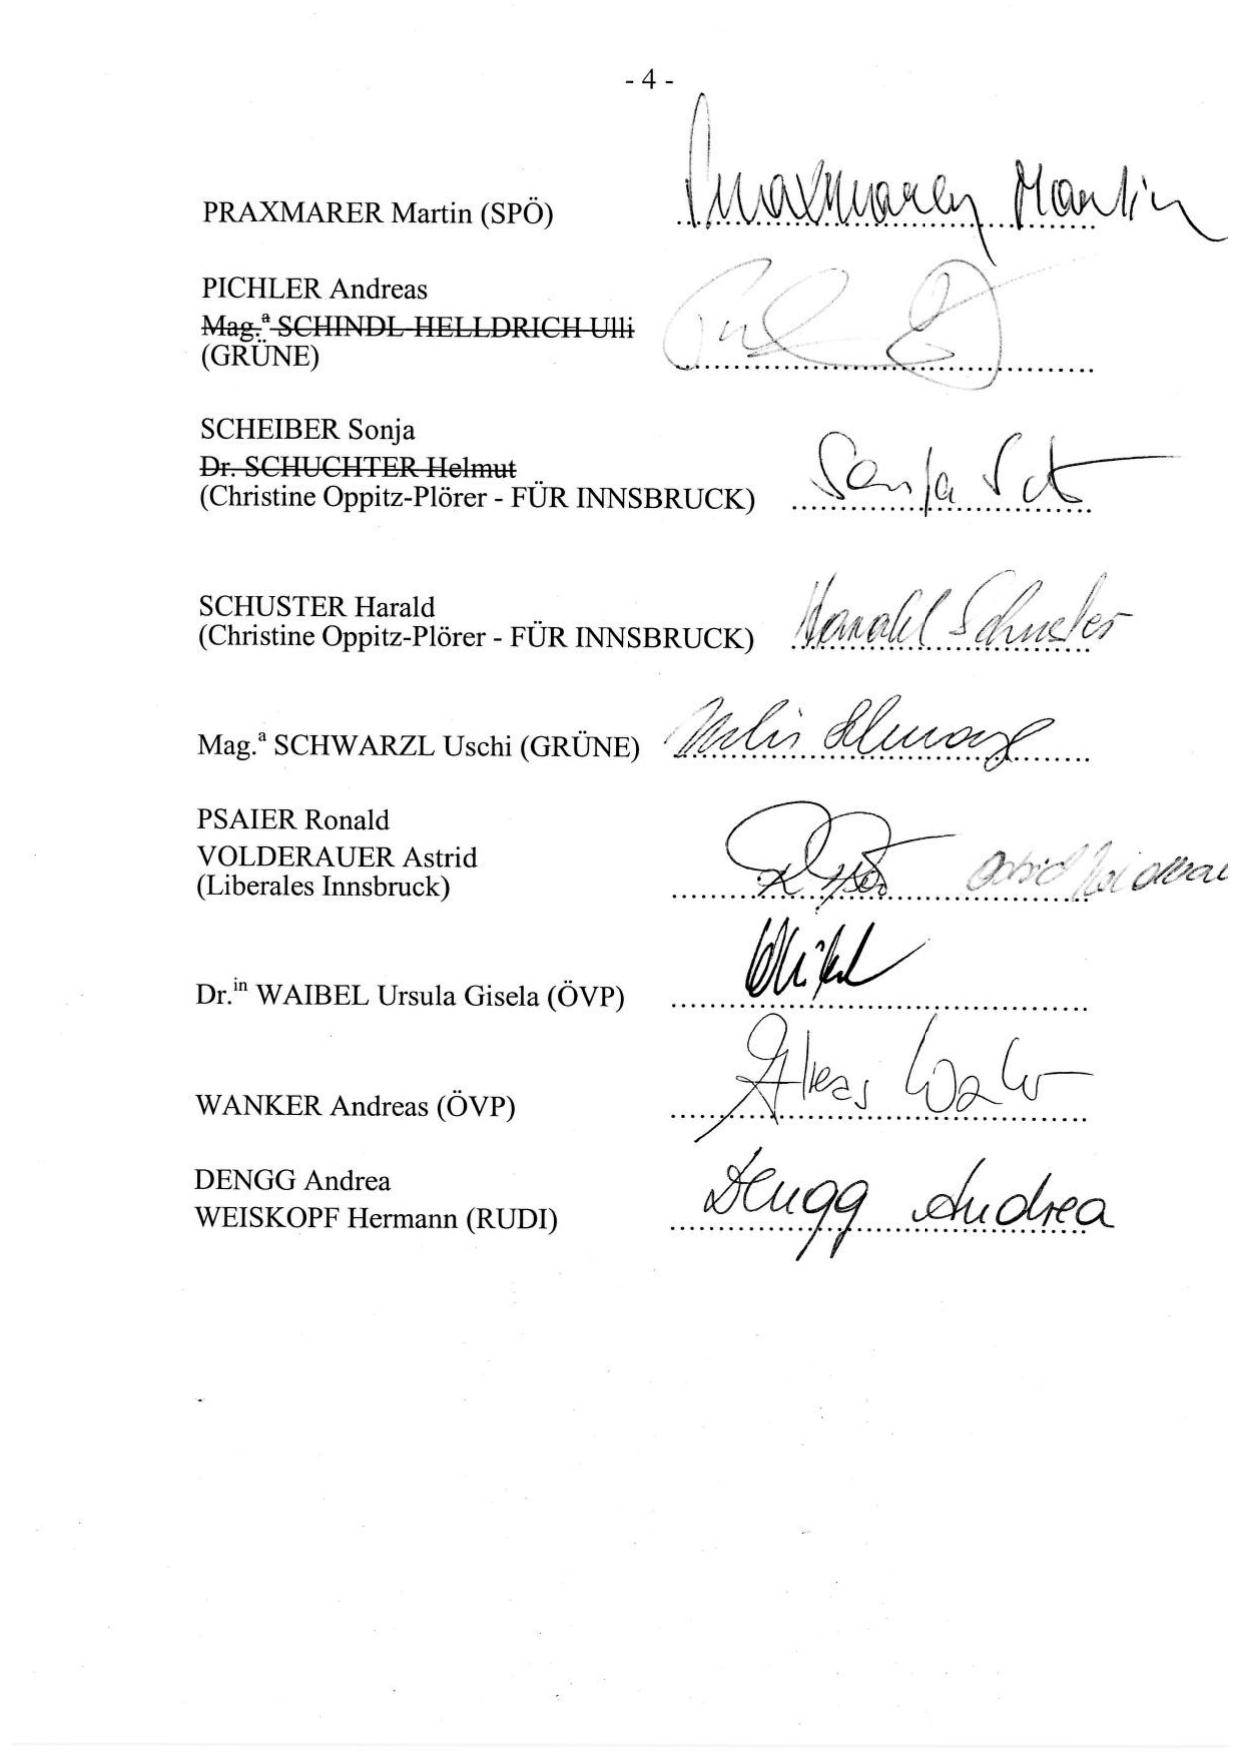 - 4 -
PRAXMARER Martin (SPÖ) Praxmarer Martin
PICHLER Andreas
Mag.ª SCHINDL-HELLDRICH Ulli
(GRÜNE)
SCHEIBER Sonja
Dr. SCHUCHTER Helmut
(Christine Oppitz-Plörer - FÜR INNSBRUCK) Sonja
SCHUSTER Harald
(Christine Oppitz-Plörer - FÜR INNSBRUCK) Harald Schuster
Mag.ª SCHWARZL Uschi (GRÜNE)
PSAIER Ronald
VOLDERAUER Astrid
(Liberales Innsbruck) Astrid
Dr.in WAIBEL Ursula Gisela (ÖVP)
WANKER Andreas (ÖVP)
DENGG Andrea
WEISKOPF Hermann (RUDI) Dengg Andrea